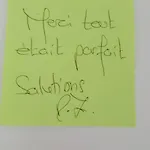 Merci tout
était parfait
Salutions
P.J.